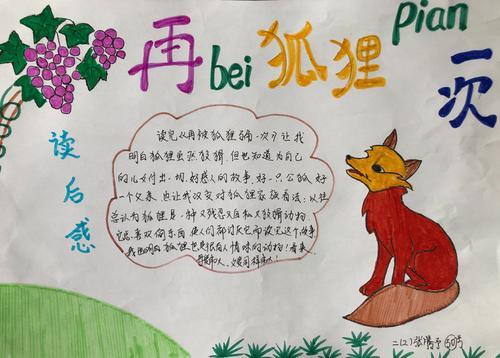 再bei狐狸pian一次
读后感
读完《再被狐狸骗一次》让我
明白狐狸虽然狡猾,但也知道为自己
的儿女付出一切,好感人的故事,好一只公狐,好
一个父亲,也让我改变对狐狸家族看法:以往
总认为狐狸是一种又残忍又自私又狡猾动物,
它总喜欢偷东西,使人们都讨厌它,而读完这个故事
我也明白狐狸也是很有人情味的动物!看来